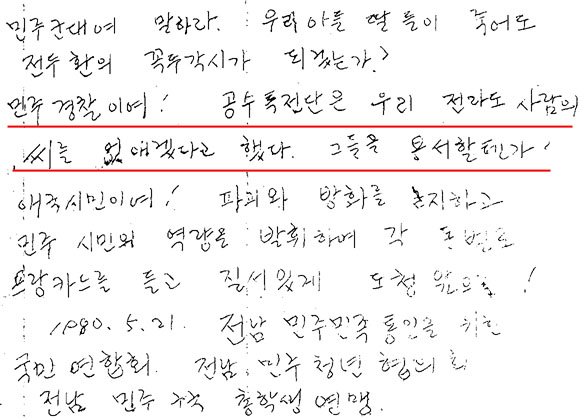 민주군대여 말하라. 우리 아들 딸들이 죽어도
전두환의 꼭두각시가 되겠는가?
민주 경찰이여! 공수특전단은 우리 전라도 사람의
씨를 없애겠다고 했다. 그들을 용서할텐가!
애국시민이여! 파괴와 방화를 중지하고
민주 시민의 역량을 발휘하여 각 동별로
프랑카드를 들고 질서있게 도청 앞으로!
1980. 5. 21. 전남 민주민족통일을 위한
국민 연합회. 전남 민주 청년 협의회
전남 민주 구국 총학생 연맹.